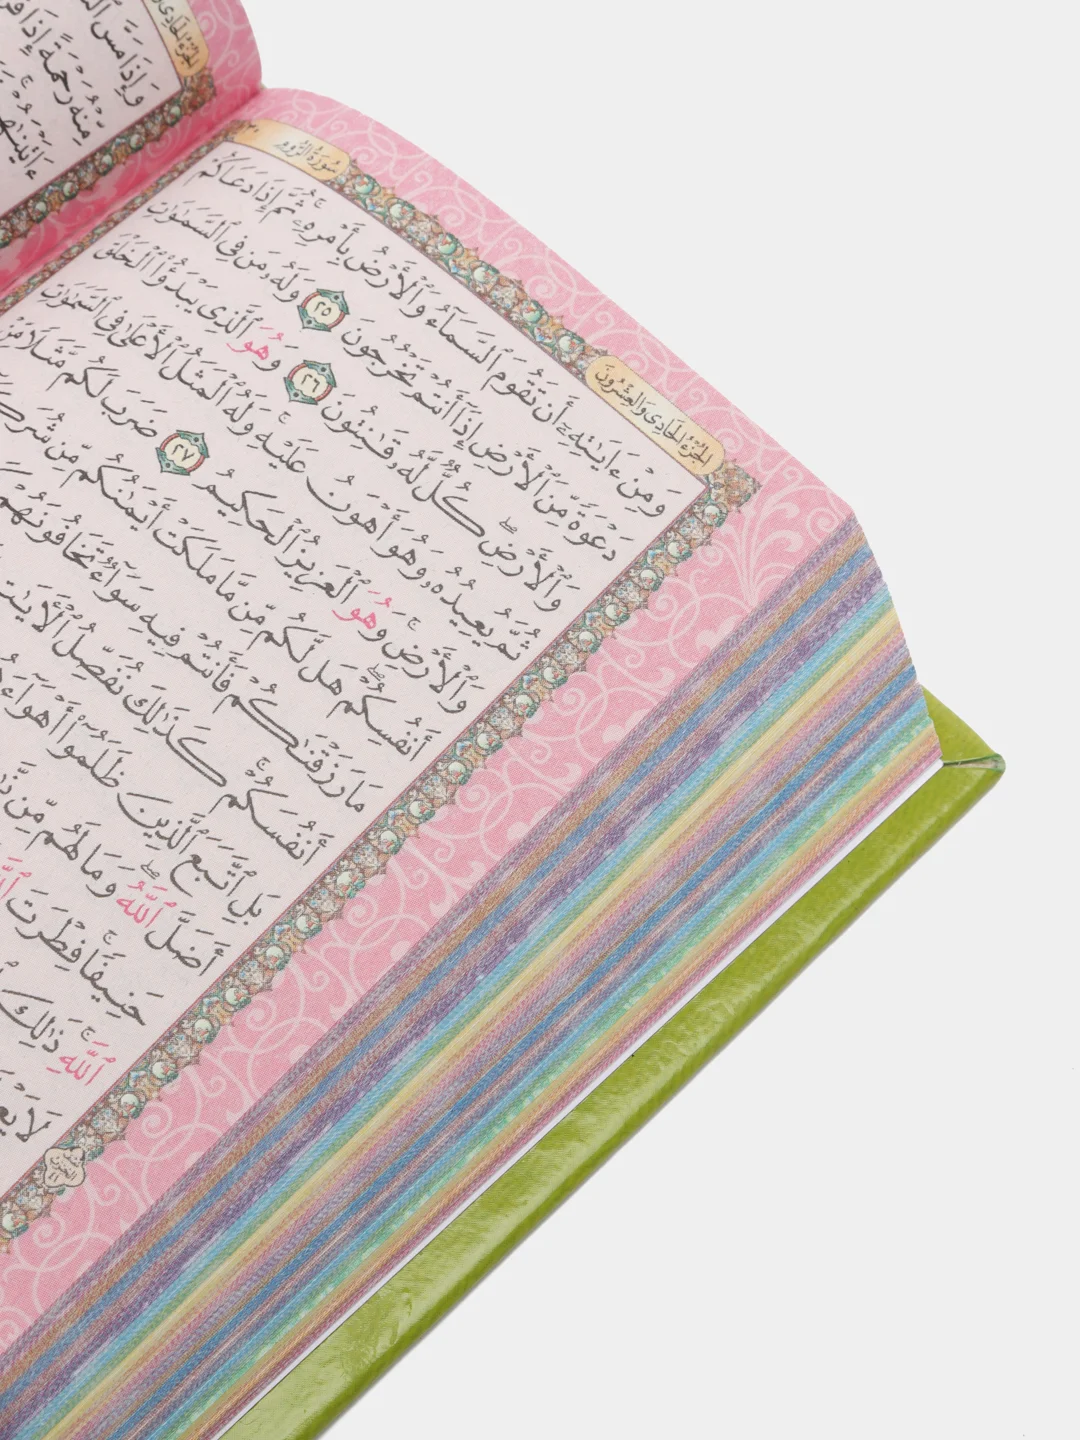 الجزء الحادي
وَإِذَا مَسَّ
مِّنْهُ رَحْمَةً إِذَا
ءَاتَيْنَٰهُمْ
سُورَةُ الرُّومِ
الجُزْءُ الحَادِي وَالعِشْرُونَ
وَمِنْ ءَايَٰتِهِۦٓ أَن تَقُومَ ٱلسَّمَآءُ وَٱلْأَرْضُ بِأَمْرِهِۦ ۚ ثُمَّ إِذَا دَعَاكُمْ
دَعْوَةً مِّنَ ٱلْأَرْضِ إِذَآ أَنتُمْ تَخْرُجُونَ ٢٥ وَلَهُۥ مَن فِى ٱلسَّمَٰوَٰتِ
وَٱلْأَرْضِ ۖ كُلٌّ لَّهُۥ قَٰنِتُونَ ٢٦ وَهُوَ ٱلَّذِى يَبْدَؤُا۟ ٱلْخَلْقَ
ثُمَّ يُعِيدُهُۥ وَهُوَ أَهْوَنُ عَلَيْهِ ۚ وَلَهُ ٱلْمَثَلُ ٱلْأَعْلَىٰ فِى ٱلسَّمَٰوَٰتِ
وَٱلْأَرْضِ ۚ وَهُوَ ٱلْعَزِيزُ ٱلْحَكِيمُ ٢٧ ضَرَبَ لَكُم مَّثَلًا مِّنْ
أَنفُسِكُمْ ۖ هَل لَّكُم مِّن مَّا مَلَكَتْ أَيْمَٰنُكُم مِّن
مَا رَزَقْنَٰكُمْ فَأَنتُمْ فِيهِ سَوَآءٌ تَخَافُونَهُمْ
أَنفُسَكُمْ ۚ كَذَٰلِكَ نُفَصِّلُ ٱلْءَايَٰتِ
بَلِ ٱتَّبَعَ ٱلَّذِينَ ظَلَمُوٓا۟ أَهْوَآءَ
أَضَلَّ ٱللَّهُ ۖ وَمَا لَهُم مِّن
حَنِيفًا ۚ فِطْرَتَ
ٱللَّهِ ۚ ذَٰلِكَ
لَا